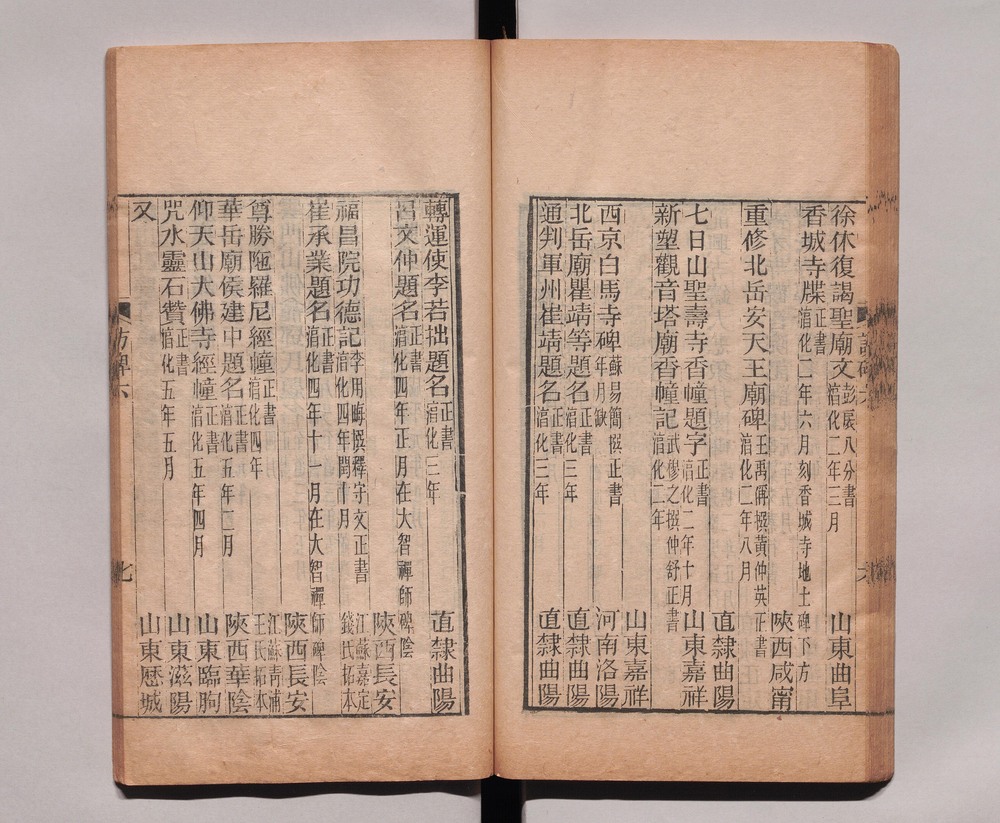 徐休復謁聖廟文 彭展八分書 淳化二年三月 山東曲阜
香城寺牒 正書 淳化二年六月刻香城寺地土碑下方 陝西咸甯
重修北岳安天王廟碑 王禹偁撰黃仲英正書 淳化二年八月 直隸曲陽
七日山聖壽寺香幢題字 正書 淳化二年十月 山東嘉祥
新塑觀音塔廟香幢記 武繆之撰仲舒正書 淳化二年 山東嘉祥
西京白馬寺碑 蘇易簡撰正書 年月缺 河南洛陽
北岳廟瞿靖等題名 正書 淳化三年 直隸曲陽
通判軍州崔靖題名 正書 淳化三年 直隸曲陽
轉運使李若拙題名 正書 淳化三年 直隸曲陽
呂文仲題名 正書 淳化四年正月在大智禪師碑陰 陝西長安
福昌院功德記 李用晦撰釋守文正書 淳化四年閏十月 江蘇嘉定錢氏拓本
崔承業題名 正書 淳化四年十一月在大智禪師碑陰 陝西長安
尊勝陁羅尼經幢 正書 淳化四年 江蘇青浦王氏拓本
華岳廟侯建中題名 正書 淳化五年二月 陝西華陰
仰天山大佛寺經幢 正書 淳化五年四月 山東臨朐
咒水靈石贊 正書 淳化五年五月 山東滋陽
又 山東歷城
訪碑六